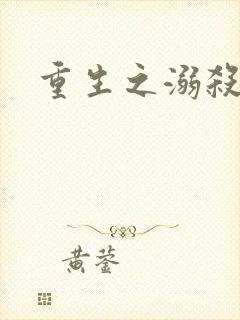 重生之溺殺
黄蓥